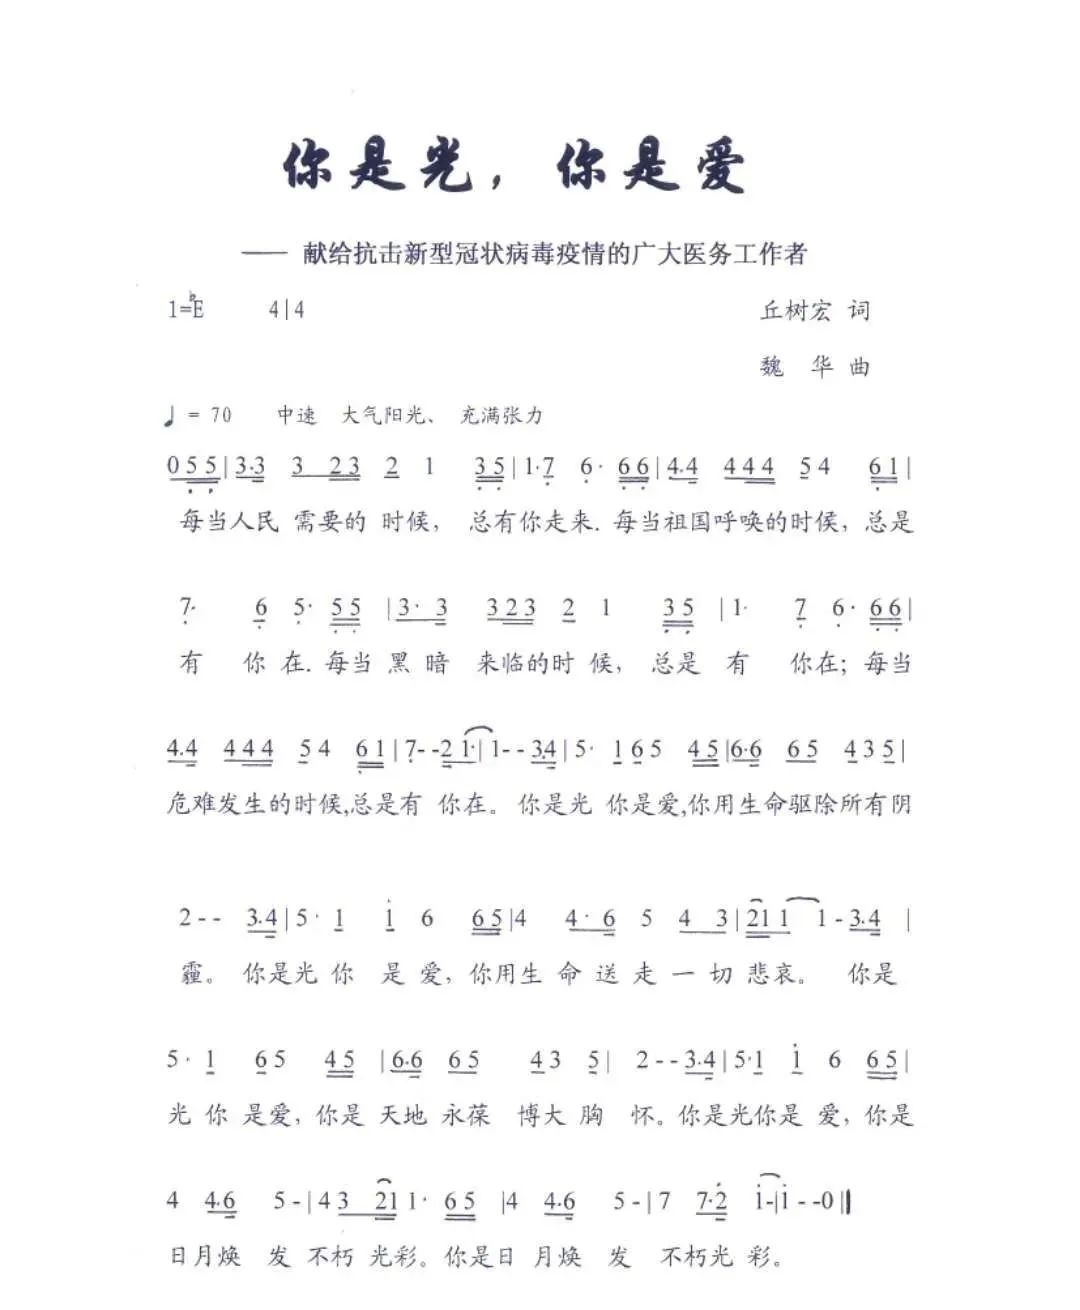 你是光，你是爱
—— 献给抗击新型冠状病毒疫情的广大医务工作者
1=♭E 4|4 丘树宏 词
魏 华 曲
♩= 70 中速 大气阳光、 充满张力
0 5 5 | 3·3 3 23 2 1 3 5 | 1·7 6· 6 6 | 4.4 444 5 4 6 1 |
每当人民 需要的 时候， 总有你走来. 每当祖国呼唤的时候，总是
7· 6 5· 5 5 | 3· 3 3 2 3 2 1 3 5 | 1· 7 6· 6 6 |
有 你 在. 每当 黑 暗 来临的时 候， 总是 有 你在；每当
4.4 4 4 4 5 4 6 1 | 7- -2 1· | 1- - 3.4 | 5· 1 6 5 4 5 | 6·6 6 5 4 3 5 |
危难发生的时候,总是有 你在。 你是光 你是爱,你用生命驱除所有阴
2 - - 3.4 | 5· 1 i 6 6 5 | 4 4· 6 5 4 3 | 21 1 1 - 3.4 |
霾。 你是光 你 是 爱，你用生 命 送 走 一 切 悲 哀。 你是
5· 1 6 5 4 5 | 6·6 6 5 4 3 5 | 2 - - 3.4 | 5·1 i 6 6 5 |
光 你 是爱，你是 天地 永葆 博大 胸 怀。你是光你是 爱，你是
4 4.6 5 - | 4 3 21 1· 6 5 | 4 4.6 5 - | 7 7·2 i- | i - -0 ‖
日月焕 发 不朽 光彩。你是日 月焕 发 不朽光 彩。